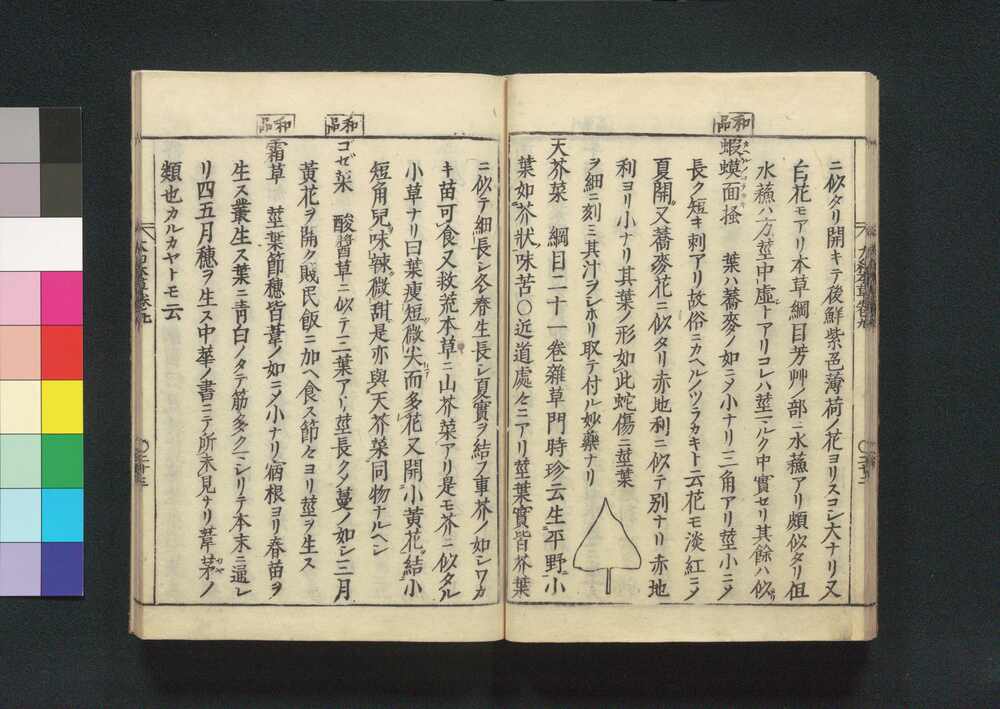 ニ似タリ開キテ後鮮紫色薄荷ノ花ヨリスコシ大ナリ又
白花モアリ本草綱目芳艸ノ部ニ水蘇アリ頗似タリ但
水蘇ハ方莖中虛トアリコレハ莖マルク中實セリ其餘ハ似タリ
和品
蝦蟆面掻 葉ハ蕎麥ノ如ニメ小ナリ三角アリ莖小ニメ
長ク短キ刺アリ故俗ニカヘルノツラカキト云花モ淡紅ニメ
夏開ク又蕎麥花ニ似タリ赤地利ニ似テ別ナリ赤地
利ヨリ小ナリ其葉ノ形如此蛇傷ニ莖葉
ヲ細ニ刻ミ其汁ヲシホリ取テ付ル妙藥ナリ
天芥菜 綱目二十一卷雜草門時珍云生平野小
葉如芥狀味苦○近道處々ニアリ莖葉實皆芥葉
ニ似テ細長シ冬春生長シ夏實ヲ結フ車芥ノ如シワカ
キ苗可食又救荒本草ニ山芥菜アリ是モ芥ニ似タル
小草ナリ曰葉瘦短微尖而多花又開小黄花結小
短角兒味辣微甜是亦與天芥菜同物ナルヘシ
和品
ゴゼ菜 酸醬草ニ似テ三葉アリ莖長クメ蔓ノ如シ三月
黄花ヲ開ク賎民飯ニ加ヘ食ス節々ヨリ莖ヲ生ス
和品
霜草 莖葉節穗皆葦ノ如ニメ小ナリ宿根ヨリ春苗ヲ
生ス叢生ス葉ニ靑白ノタテ筋多クマシリテ本末ニ逼レ
リ四五月穗ヲ生ス中華ノ書ニテ所未見ナリ葦茅ノ
類也カルカヤトモ云